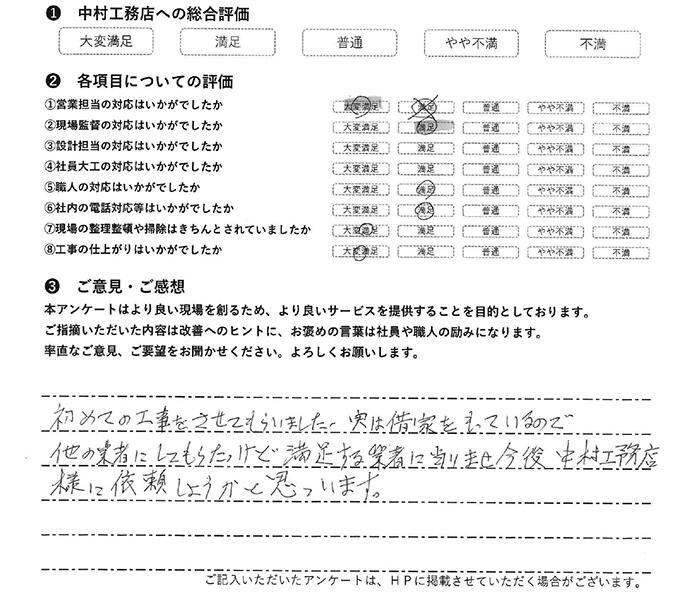 ❶ 中村工務店への総合評価
大変満足 満足 普通 やや不満 不満
❷ 各項目についての評価
①営業担当の対応はいかがでしたか 大変満足 満足 普通 やや不満 不満
②現場監督の対応はいかがでしたか 大変満足 満足 普通 やや不満 不満
③設計担当の対応はいかがでしたか 大変満足 満足 普通 やや不満 不満
④社員大工の対応はいかがでしたか 大変満足 満足 普通 やや不満 不満
⑤職人の対応はいかがでしたか 大変満足 満足 普通 やや不満 不満
⑥社内の電話対応等はいかがでしたか 大変満足 満足 普通 やや不満 不満
⑦現場の整理整頓や掃除はきちんとされていましたか 大変満足 満足 普通 やや不満 不満
⑧工事の仕上がりはいかがでしたか 大変満足 満足 普通 やや不満 不満
❸ ご意見・ご感想
本アンケートはより良い現場を創るため、より良いサービスを提供することを目的としております。
ご指摘いただいた内容は改善へのヒントに、お褒めの言葉は社員や職人の励みになります。
率直なご意見、ご要望をお聞かせください。よろしくお願いします。
初めての工事をさせてもらいました、実は借家をもっているので
他の業者にしてもらたけど満足する業者に当りませ今後中村工務店
様に依頼しようかと思っています。
ご記入いただいたアンケートは、HPに掲載させていただく場合がございます。